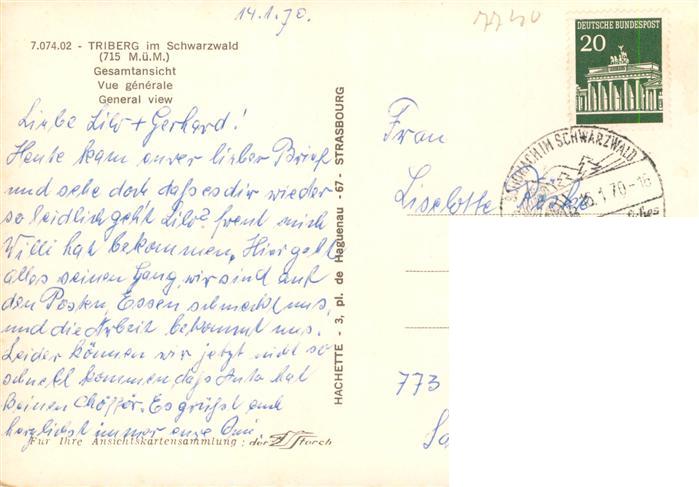 14.1.70.
7740
7.074.02 - TRIBERG im Schwarzwald
(715 M.ü.M.)
Gesamtansicht
Vue générale
General view
Liebe Lilo + Gerhard!
Heute kam euer lieber Brief
und sehe doch daß es dir wieder
so leidlich geht Lilo? freut mich
Willi hat bekommen. Hier geht
alles seinen Gang, wir sind auf
den Posten, Essen schmeckt uns,
und die Arbeit bekommt uns.
Leider können wir jetzt nicht so
schnell kommen, daß Auto hat
keinen Chöffór. Es grüßt euch
herzlichst immer eure Omi.
Für Ihre Ansichtskartensammlung: der Storch
HACHETTE - 3, pl. de Haguenau -67- STRASBOURG
DEUTSCHE BUNDESPOST
20
IM SCHWARZWALD
1.70-16
Frau
Liselotte
773